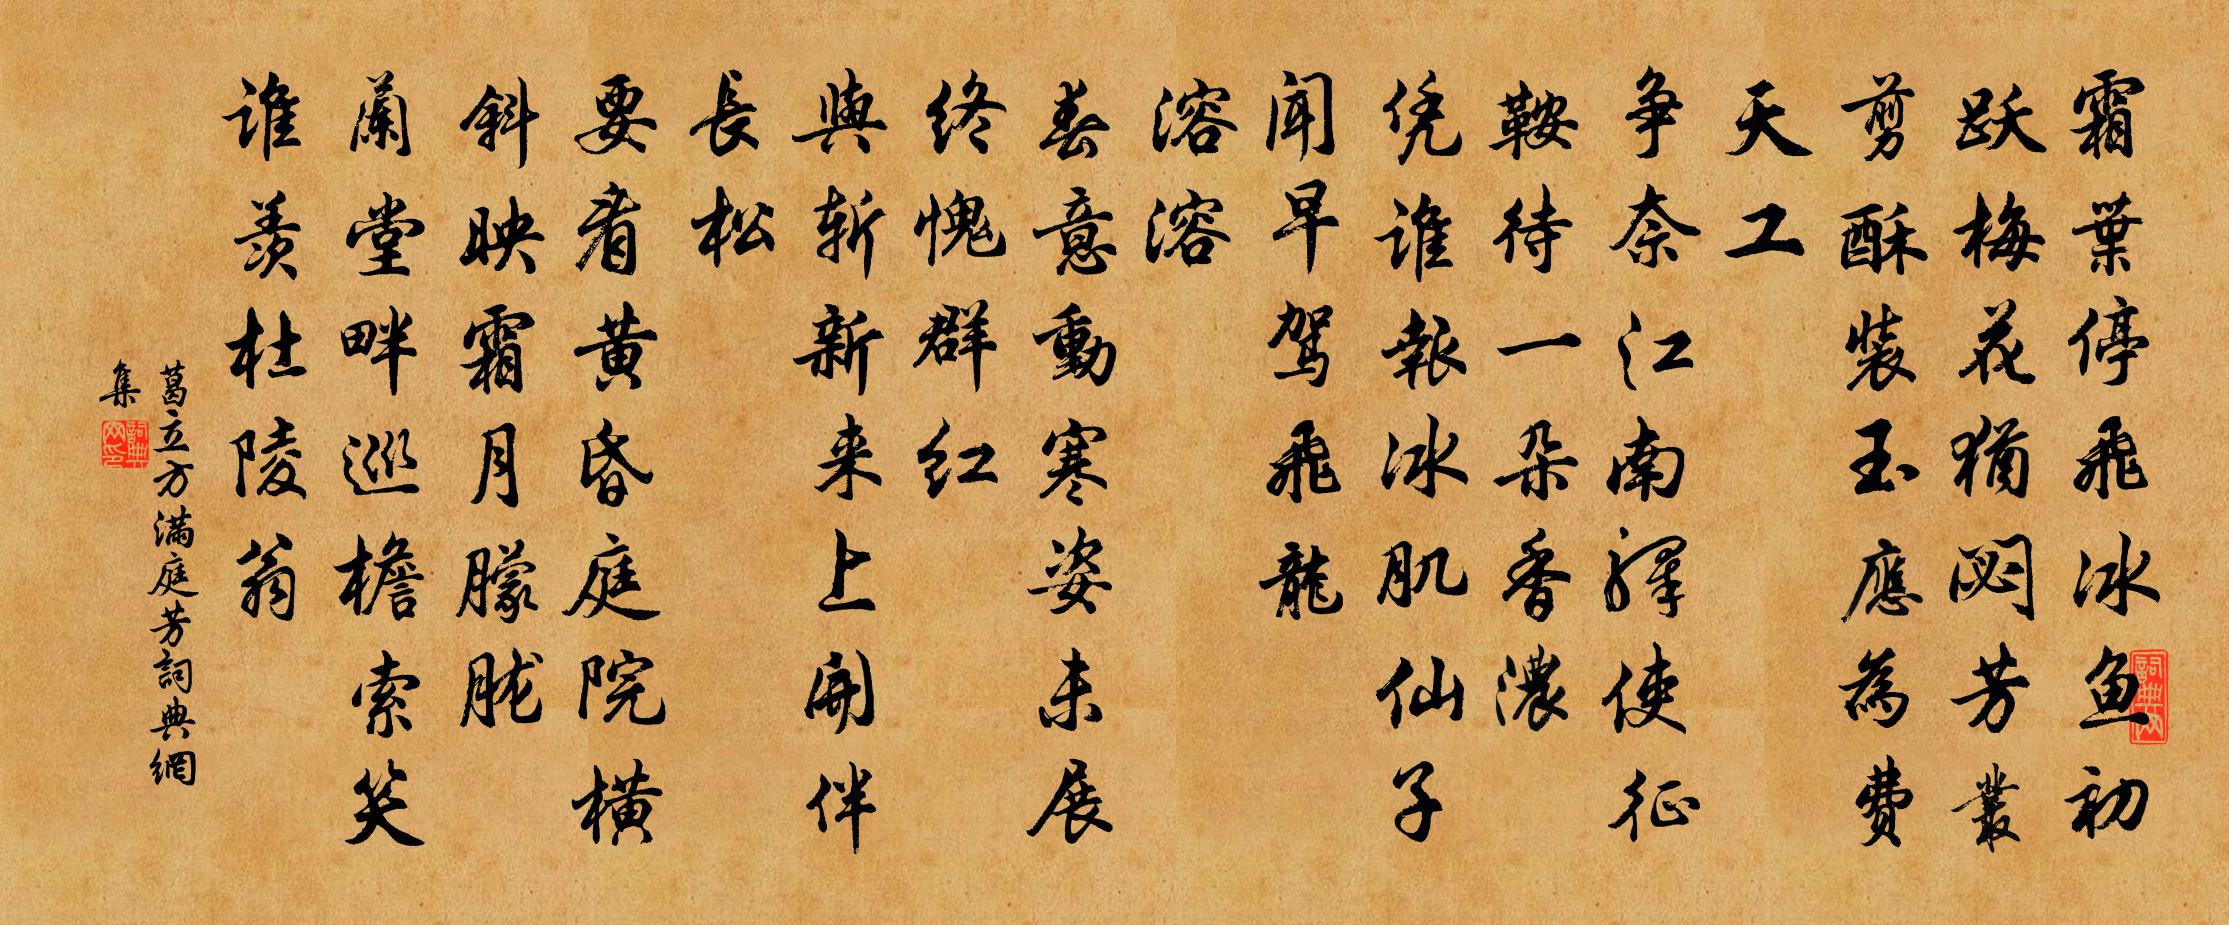 霜葉停飛冰魚初
跃梅花猶閟芳叢
剪酥裝玉應為費
天工
争奈江南驛使征
鞍待一朵香濃
凭谁報冰肌仙子
闻早驾飛龍
溶溶
春意動寒姿未展
终愧群红
與斩新来上開伴
長松
要看黄昏庭院橫
斜映霜月朦胧
蘭堂畔巡檐索笑
谁羡杜陵翁
葛立方滿庭芳詞典網
集
詞典網印
詞典網